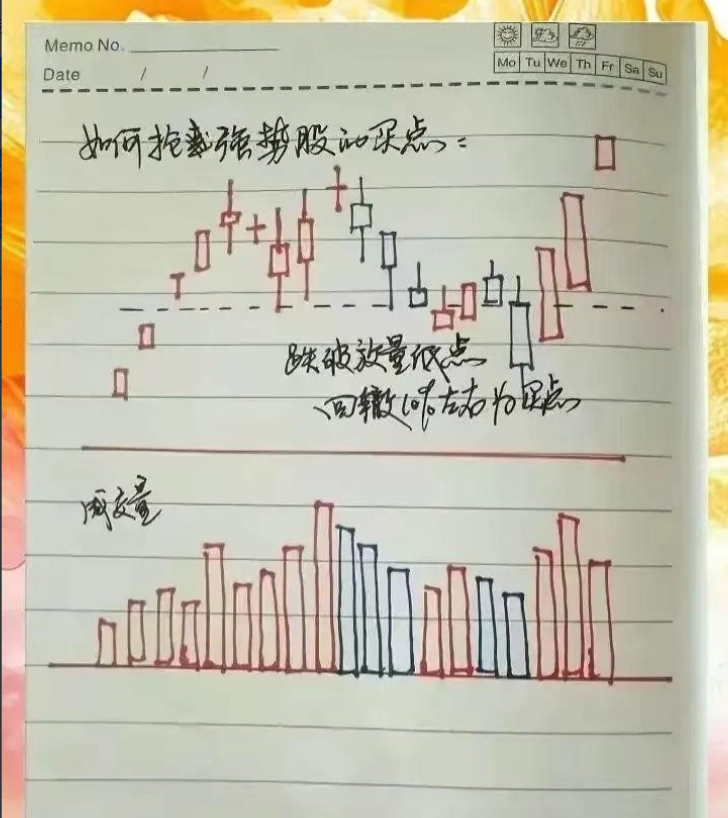 Memo No.
Date / /
Mo Tu We Th Fr Sa Su
如何抢裁强势股的买点:
跌破放量低点
回辙10%左右为买点
成交量